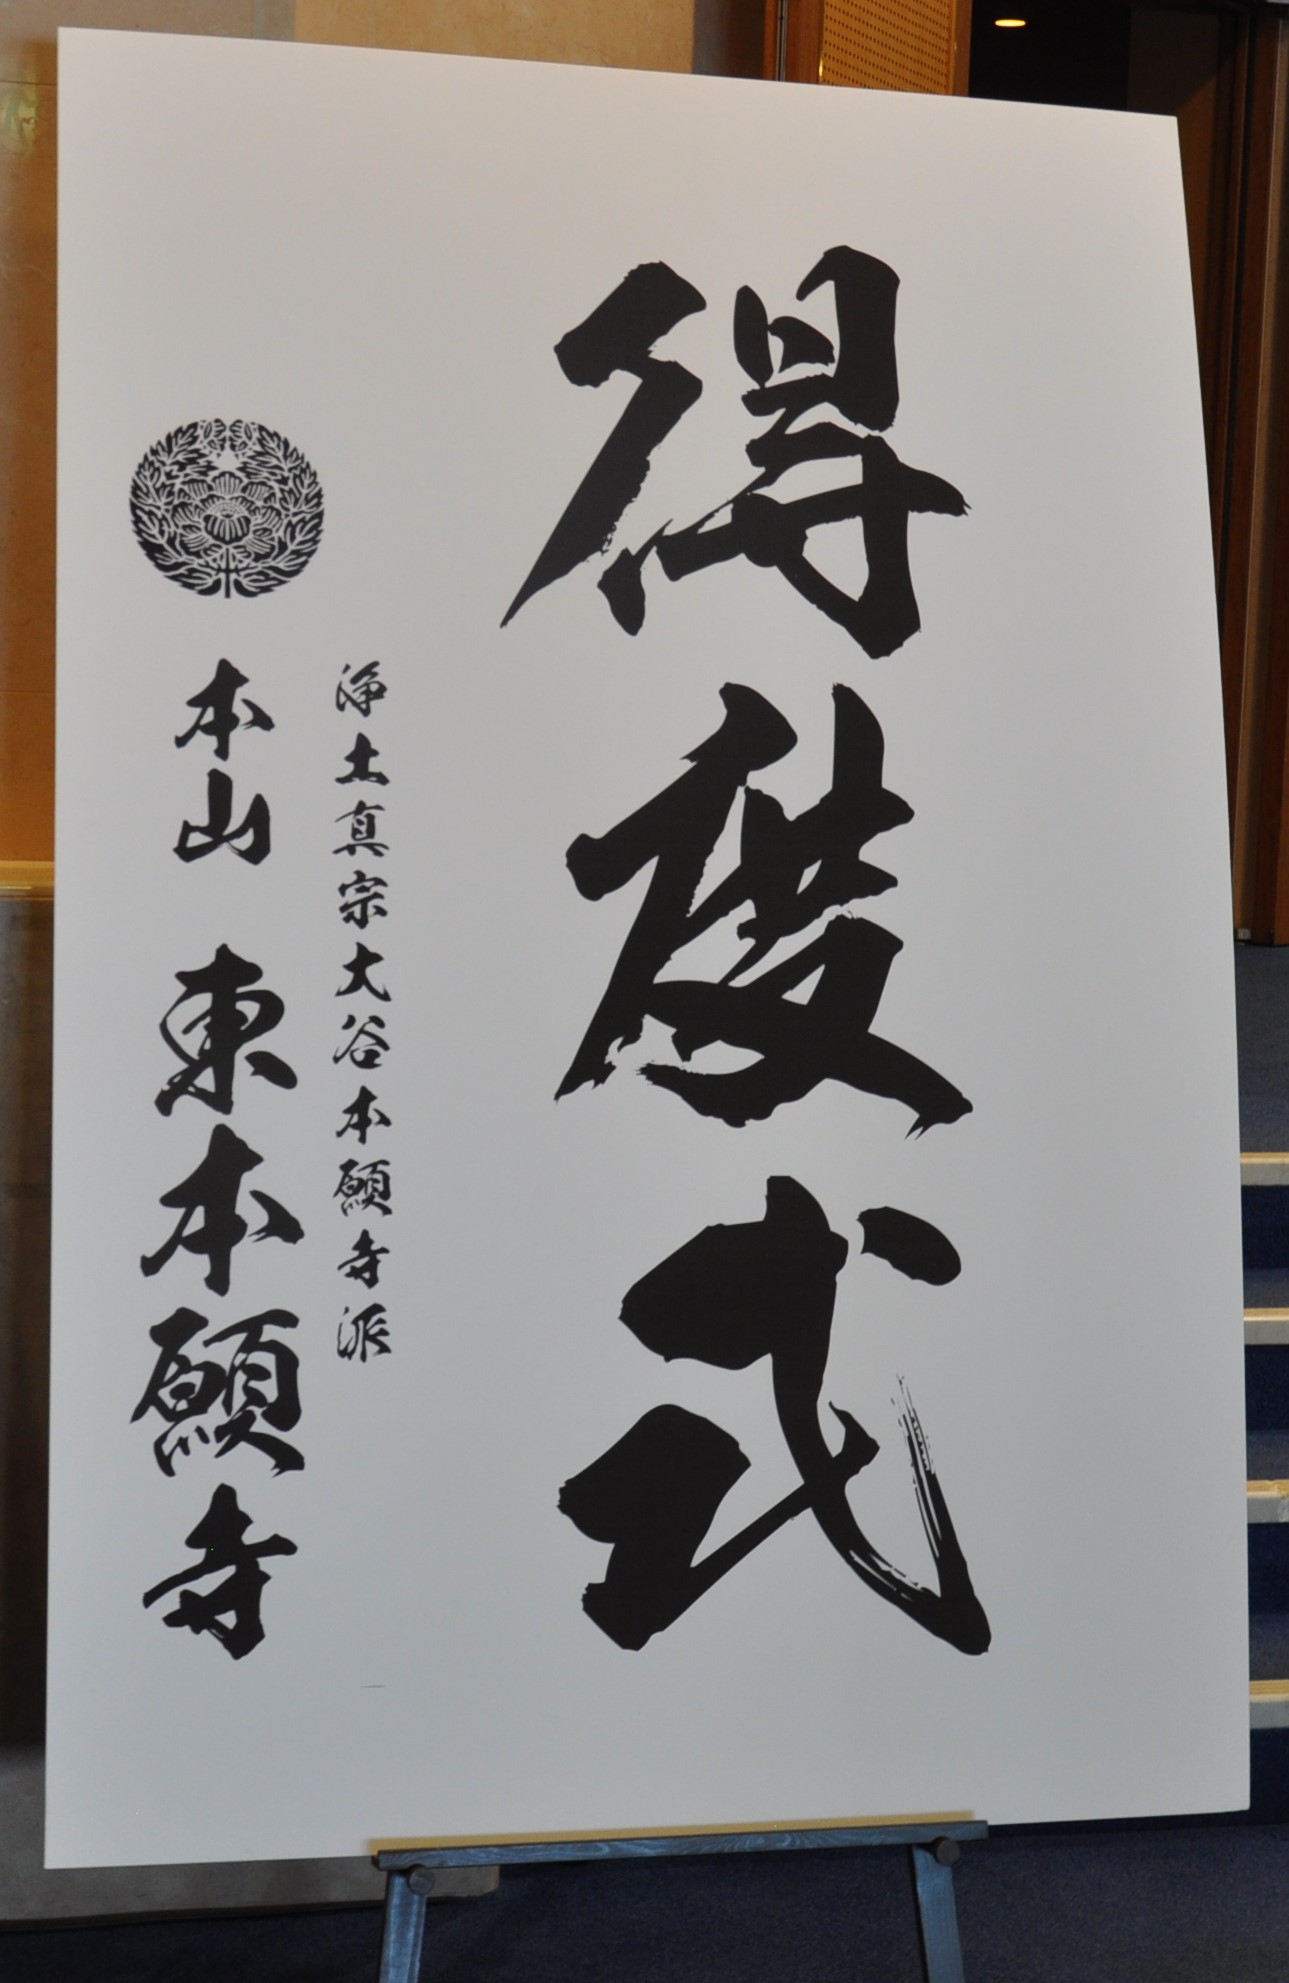 得度式
浄土真宗大谷本願寺派
本山 東本願寺